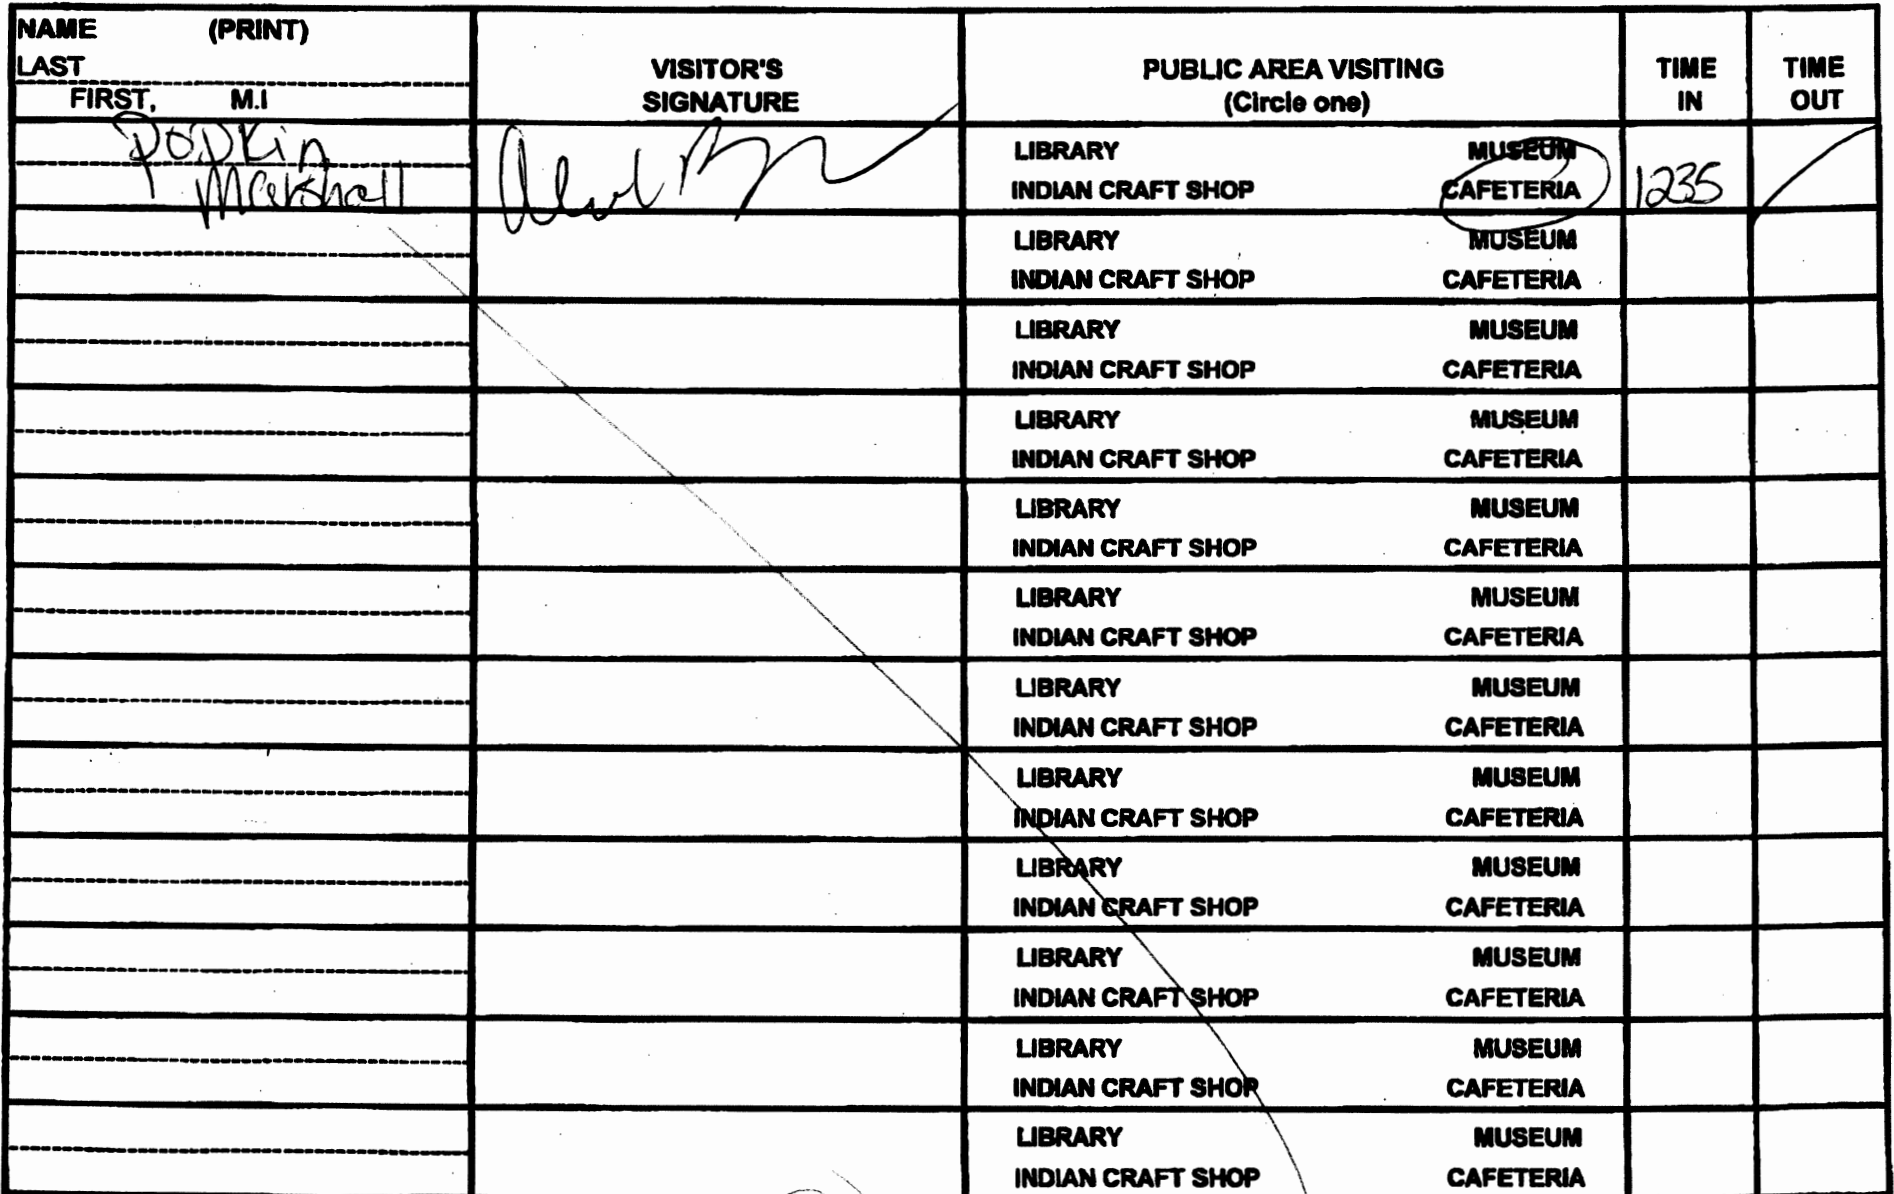 NAME (PRINT)
LAST
FIRST, M.I
VISITOR'S
SIGNATURE
PUBLIC AREA VISITING
(Circle one)
TIME
IN
TIME
OUT
Popkin
Marshall
LIBRARY MUSEUM
INDIAN CRAFT SHOP CAFETERIA
1235
LIBRARY MUSEUM
INDIAN CRAFT SHOP CAFETERIA
LIBRARY MUSEUM
INDIAN CRAFT SHOP CAFETERIA
LIBRARY MUSEUM
INDIAN CRAFT SHOP CAFETERIA
LIBRARY MUSEUM
INDIAN CRAFT SHOP CAFETERIA
LIBRARY MUSEUM
INDIAN CRAFT SHOP CAFETERIA
LIBRARY MUSEUM
INDIAN CRAFT SHOP CAFETERIA
LIBRARY MUSEUM
INDIAN CRAFT SHOP CAFETERIA
LIBRARY MUSEUM
INDIAN CRAFT SHOP CAFETERIA
LIBRARY MUSEUM
INDIAN CRAFT SHOP CAFETERIA
LIBRARY MUSEUM
INDIAN CRAFT SHOP CAFETERIA
LIBRARY MUSEUM
INDIAN CRAFT SHOP CAFETERIA